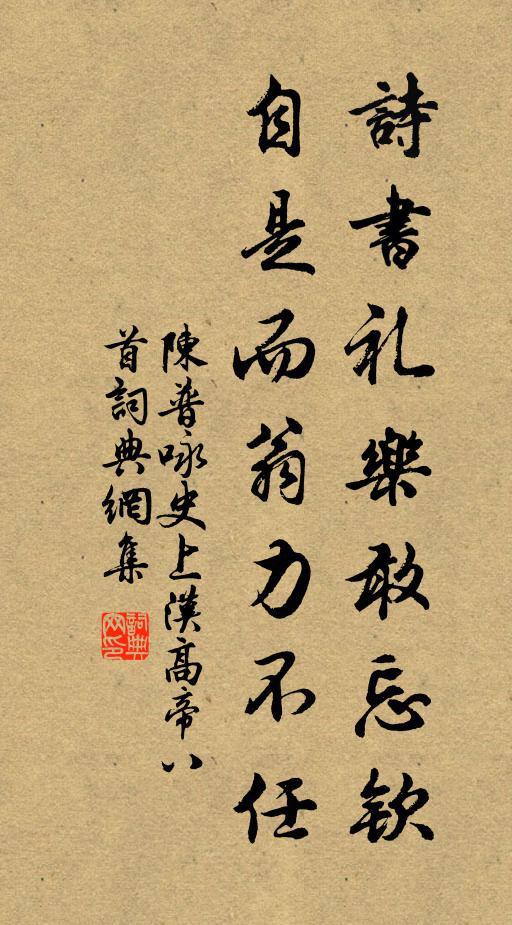 詩書礼樂敢忘欽
自是而翁力不任
陳普咏史上漢高帝八
首詞典網集
詞典网印